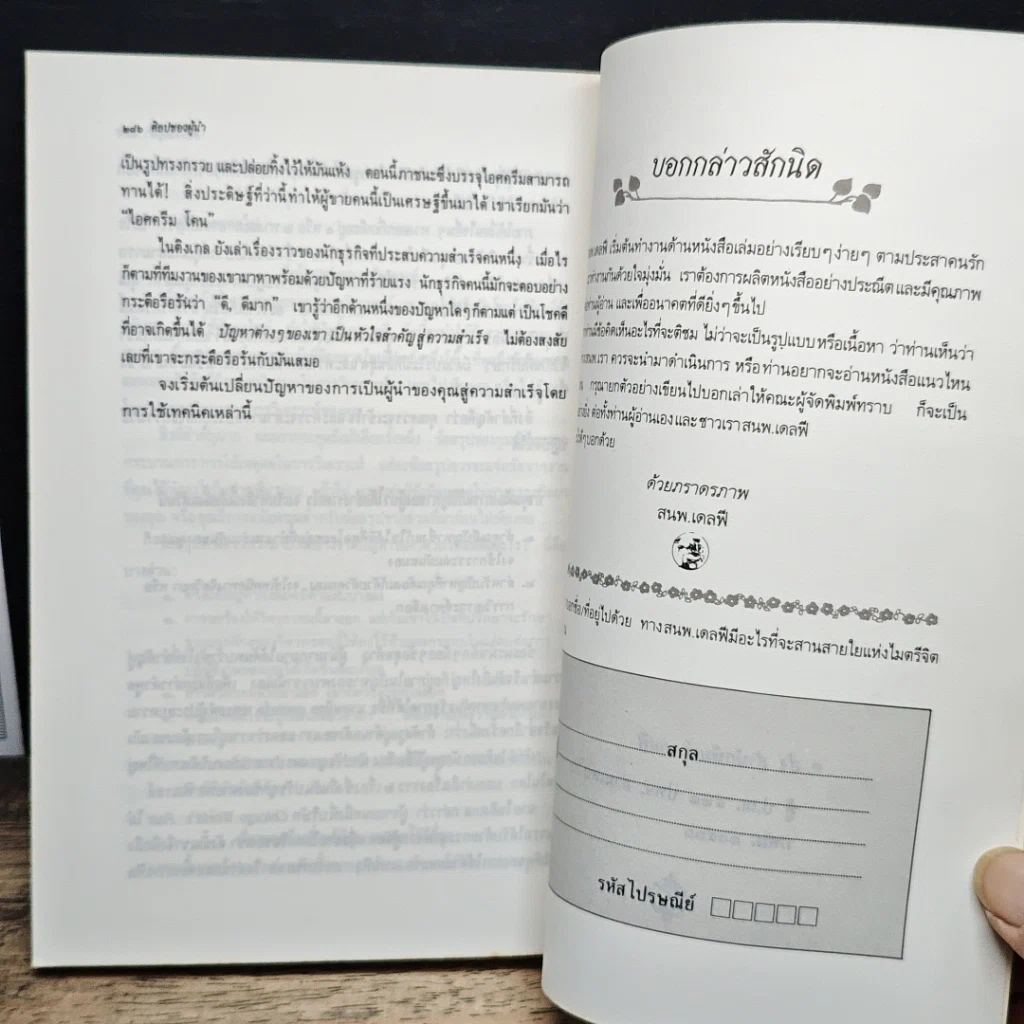 ๒๘๖ ศิลปของผู้นำ
เป็นรูปทรงกรวย และปล่อยทิ้งไว้ให้มันแห้ง ตอนนี้ภาชนะซึ่งบรรจุไอศครีมสามารถ
ทานได้! สิ่งประดิษฐ์ที่ว่านี้ทำให้ผู้ขายคนนี้เป็นเศรษฐีขึ้นมาได้ เขาเรียกมันว่า
“ไอศครีม โคน”
ไนติงเกล ยังเล่าเรื่องราวของนักธุรกิจที่ประสบความสำเร็จคนหนึ่ง เมื่อไร
ก็ตามที่ทีมงานของเขามาหาพร้อมด้วยปัญหาที่ร้ายแรง นักธุรกิจคนนี้มักจะตอบอย่าง
กระตือรือร้นว่า “ดี, ดีมาก” เขารู้ว่าอีกด้านหนึ่งของปัญหาใดๆก็ตามแต่ เป็นโชคดี
ที่อาจเกิดขึ้นได้ ปัญหาต่างๆของเขา เป็นหัวใจสำคัญสู่ความสำเร็จ ไม่ต้องสงสัย
เลยที่เขาจะกระตือรือร้นกับมันเสมอ
จงเริ่มต้นเปลี่ยนปัญหาของการเป็นผู้นำของคุณสู่ความสำเร็จโดย
การใช้เทคนิคเหล่านี้
บอกกล่าวสักนิด
เดลฟี เริ่มต้นทำงานด้านหนังสือเล่มอย่างเรียบๆง่ายๆ ตามประสาคนรัก
ทำงานกันด้วยใจมุ่งมั่น เราต้องการผลิตหนังสืออย่างประณีต และมีคุณภาพ
ท่านผู้อ่าน และเพื่ออนาคตที่ดียิ่งๆขึ้นไป
ท่านมีข้อคิดเห็นอะไรที่จะติชม ไม่ว่าจะเป็นรูปแบบ หรือเนื้อหา ว่าท่านเห็นว่า
เรา ควรจะนำมาดำเนินการ หรือท่านอยากจะอ่านหนังสือแนวไหน
กรุณายกตัวอย่างเขียนไปบอกเล่าให้คณะผู้จัดพิมพ์ทราบ ก็จะเป็น
ต่อทั้งท่านผู้อ่านเองและชาวเราสนพ.เดลฟี
บอกด้วย
ด้วยภราดรภาพ
สนพ.เดลฟี
ชื่อ/ที่อยู่ไปด้วย ทางสนพ.เดลฟีมีอะไรที่จะสานสายใยแห่งไมตรีจิต
สกุล
รหัสไปรษณีย์